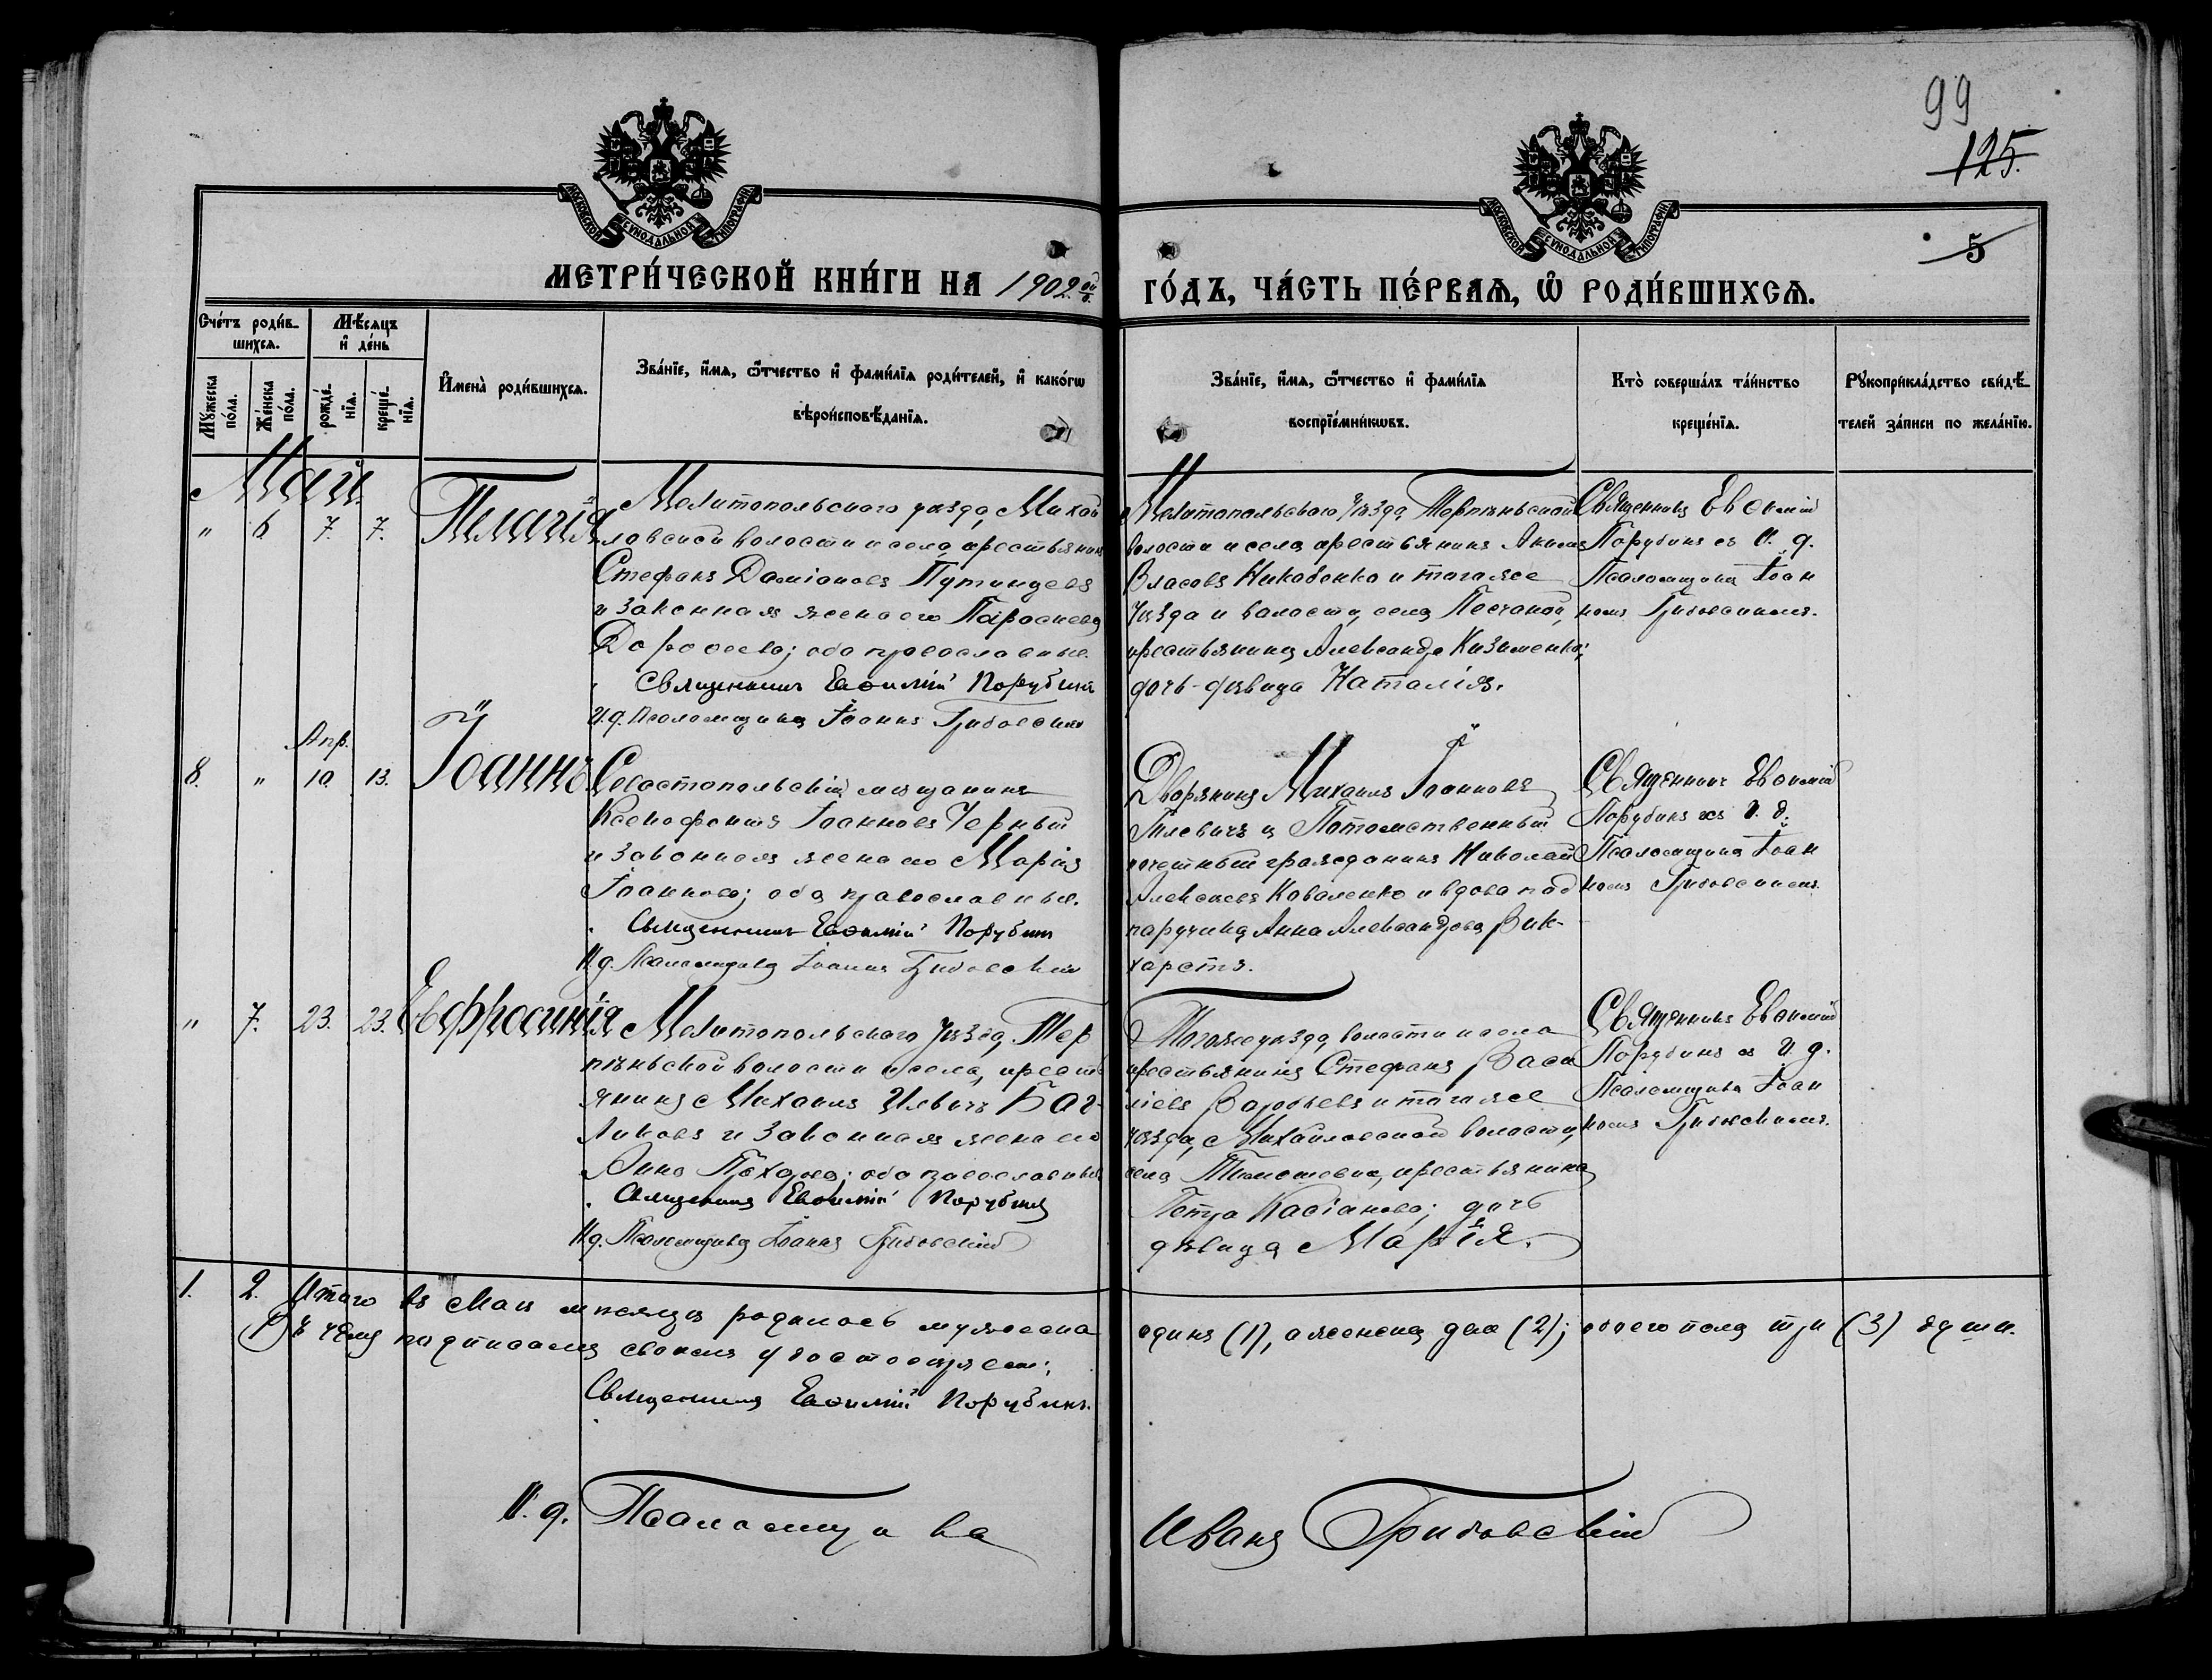 99
125.
МОСКОВСКОЙ СѴНОДАЛЬНОЙ ТИПОГРАФІИ
МОСКОВСКОЙ СѴНОДАЛЬНОЙ ТИПОГРАФІИ
5
МЕТРИ́ЧЕСКОЙ КНИ́ГИ НА 1902 ой
ГО́ДЪ, ЧА́СТЬ ПЕ́РВАѦ, Ѽ РОДИ́ВШИХСѦ.
Сче́тъ роди́в-
шихсѧ.
Мꙋ́жеска по́ла.
Же́нска по́ла.
Мѣ́сѧцъ и҆ де́нь
рожде́нїѧ.
креще́нїѧ.
И҆мена̀ роди́вшихсѧ.
Зва́нїе, и҆́мѧ, ѻ҆́тчество и҆ фами́лїѧ роди́телей, и҆ како́гѡ
вѣроисповѣ́данїѧ.
Зва́нїе, и҆́мѧ, ѻ҆́тчество и҆ фами́лїѧ
воспрїе́мникѡвъ.
Кто̀ соверша́лъ та́инство
креще́нїѧ.
Рꙋкоприкла́дство свидѣ́-
телей за́писи по жела́нїю.
Май.
" 6 7. 7. Пелагія
Мелитопольскаго уѣзда, Михай
ловской волости и села, крестьянинъ
Стефанъ Даміановъ Путинцевъ
и законная жена его Параскева
Дорофеева; оба православные.
Священникъ Евѳимій Порубинъ
И.д. Псаломщика Іоаннъ Грибовскій
Мелитопольскаго уѣзда, Терпѣньевской
волости и села крестьянинъ Акимъ
Власовъ Никобенко и того же
уѣзда и волости, села Песчаной,
крестьянина Александра Кизименко;
дочь-дѣвица Наталія.
Священникъ Евѳимій
Порубинъ съ И. д.
Псаломщика Іоан
номъ Грибовскимъ.
Апр.
8. " 10. 13. Іоаннъ
Севастопольскій мѣщанинъ
Ксенофонтъ Іоанновъ Черный
и законная жена его Марія
Іоаннова; оба православные.
Священникъ Евѳимій Порубинъ
И.д. Псаломщика Іоаннъ Грибовскій
Дворянинъ Михаилъ Іоанновъ
и Потомственный
почетный гражданинъ Николай
Алексѣевъ Коваленко и вдова под
паручика Анна Александрова Вик-
харстъ.
Священникъ Евѳимій
Порубинъ съ И. д.
Псаломщика Іоан
номъ Грибовскимъ.
" 7. 23. 23. Евфросинія
Мелитопольскаго уѣзда, Тер
пѣньевской волости и села, кресть
янинъ Михаилъ Ильичъ Баг-
ликовъ и законная жена его
Анна Прохорова; оба православные
Священникъ Евѳимій Порубинъ
И.д. Псаломщика Іоаннъ Грибовскій
Того же уѣзда, волости и села
крестьянинъ Стефанъ Васи
ліевъ Воробьевъ и того же
уѣзда, Михайловской волости,
села Тимошевки, крестьянина
Петра Касіанова; дочь
дѣвица Марія.
Священникъ Евѳимій
Порубинъ съ И. д.
Псаломщика Іоан
номъ Грибовскимъ.
1. 2. Итого въ маѣ мѣсяцѣ родилось мужеска одинъ (1), а женска два (2); обоего пола три (3) души.
Въ чемъ подписомъ своимъ удостовѣряемъ:
Священникъ Евѳимій Порубинъ.
И. д. Псаломщика Иванъ Грибовскій